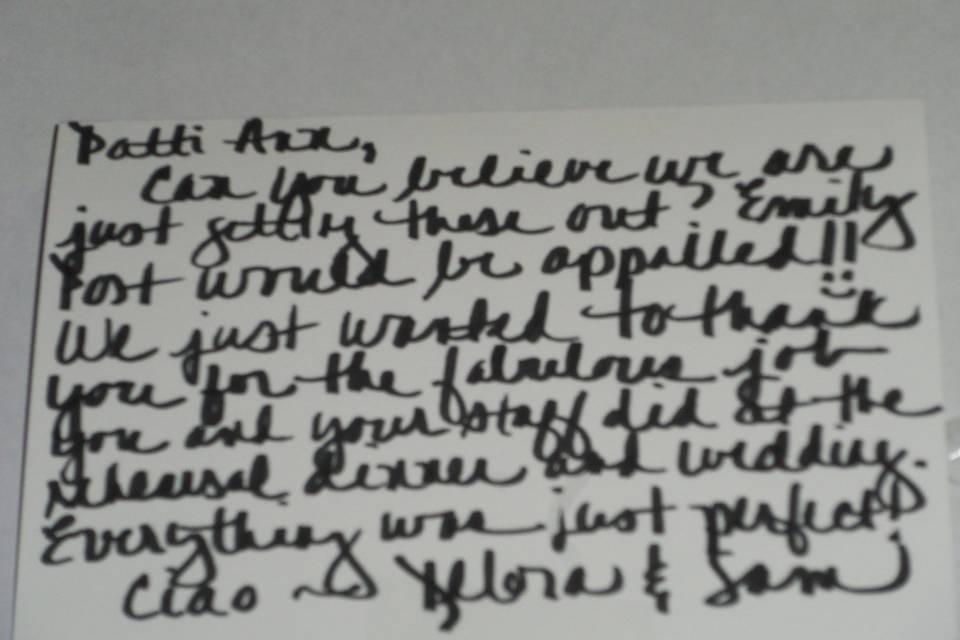 Patti Ann,
Can you believe we are
just getting these out? Emily
Post would be appalled!!
We just wanted to thank
you for the fabulous job
you and your staff did at the
rehearsal dinner and wedding.
Everything was just perfect!
Ciao ~ Debora & Sam